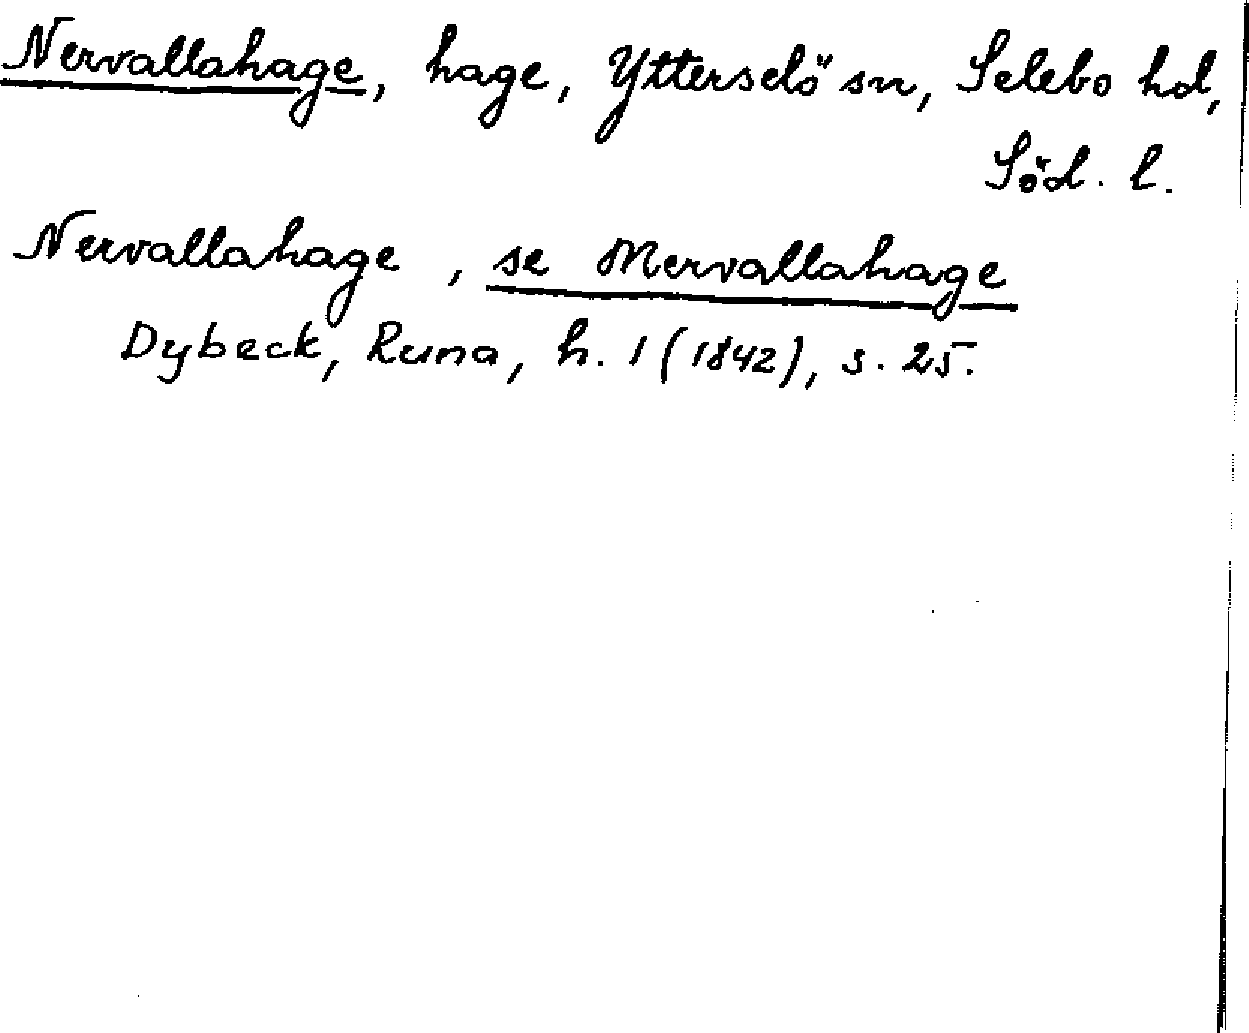 Nervallahage, hage, Ytterselö sn, Selebo hd,
Söd. l.
Nervallahage, se Mervallahage
Dybeck, Runa, h. 1 (1842), s. 25.